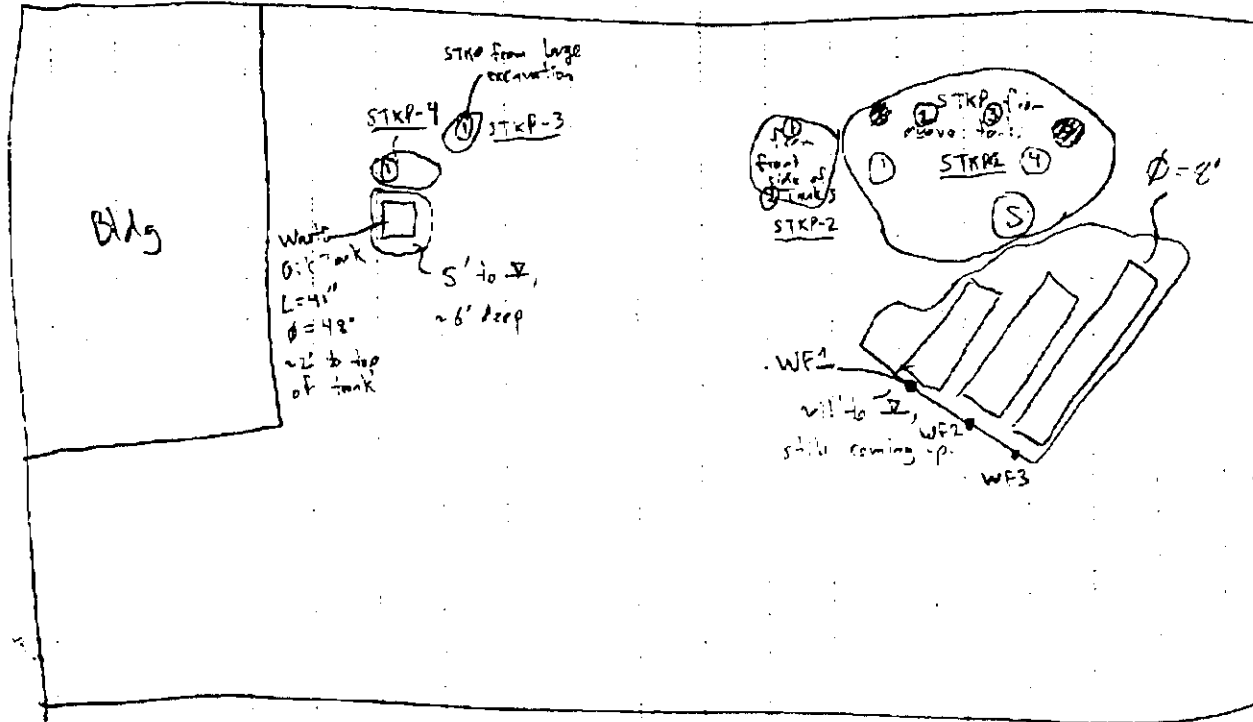 Bldg
STKP from large
excavation
STKP-4
1
1
STKP-3
Waste
Oil Tank
L=48"
ϕ=48"
~2' to top
of tank
5' to ∇,
~6' deep
1
from
front
side of
2 tanks
STKP-2
STKP from
2
3
1
4
5
ϕ=8'
WF1
~11' to ∇,
still coming up.
WF2
WF3